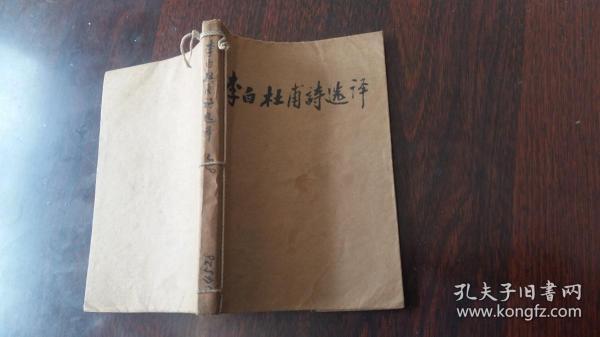 李白杜甫詩选译
李白杜甫诗选译
孔夫子旧書网
www.kongfz.com